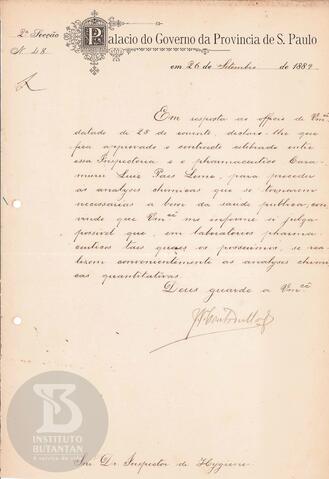 2ª Secção
N. 48
Palacio do Governo da Provincia de S. Paulo
em 26 de Setembro de 1889
Em resposta ao officio de Vmcê
datado de 25 do corrente, declaro-lhe que
fica approvado o contracto celebrado entre
essa Inspectoria e o pharmaceutico Cara-
murú Luiz Paes Leme, para proceder
ás analyses chimicas que se tornarem
necessarias a bem da saude publica, con-
vindo que Vmcê me informe si julga
possivel que, em laboratorios pharma-
ceuticos taes quaes os possuimos, se rea-
lisem convenientemente as analyses chimi-
cas quantitativas.
Deus guarde a Vmcê
Snr. Dr. Inspector de Hygiene
INSTITUTO
BUTANTAN
A serviço da vida